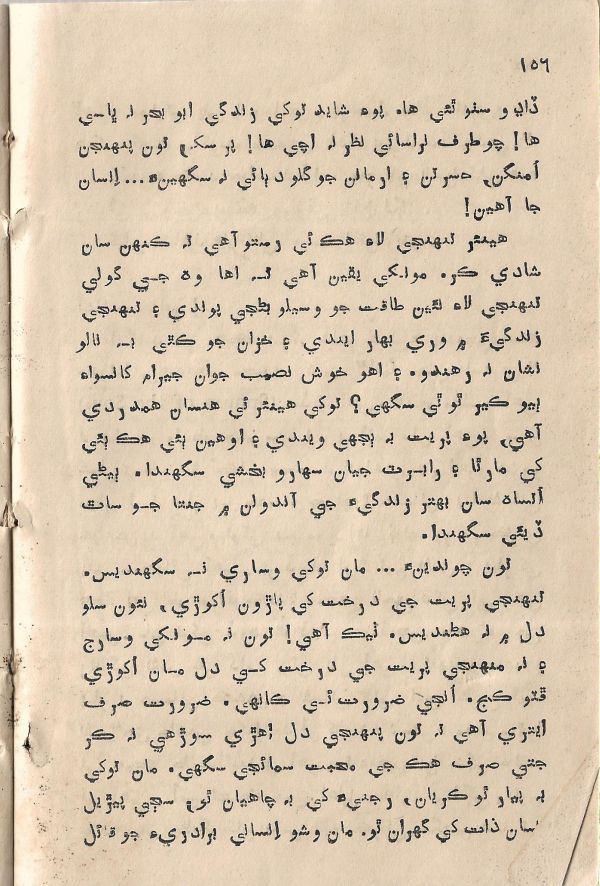 ١٥٦
ڏاڍو سٺو ٿئي ها. پوءِ شايد توکي زندگي ايو بحر نہ ڀاسي
ها! چوطرف نراسائي نظر نہ اچي ها! پر سکر تون پنهنجن
اُمنگن، حسرتن ۽ ارمانن جو گلو دٻائي نہ سگهينءَ... اِنسان
جا آهين!
هينئر تنهنجي لاءِ هڪ ئي رستو آهي تہ ڪنهن سان
شادي ڪر. مونکي يقين آهي تہ اها وہ جي گولي
تنهنجي لاءِ نئين طاقت جو وسيلو بڻجي پوندي ۽ تنهنجي
زندگيءَ ۾ وري بهار ايندي ۽ خزان جو ڪٿي بہ نالو
نشان نہ رهندو. ۽ اهو خوش نصيب جوان جيرام کانسواءِ
ٻيو ڪير ٿو ٿي سگهي؟ توکي هينئر ئي هنسان همدردي
آهي، پوءِ پريت بہ ٻجهي ويندي ۽ اوهين ٻئي هڪ ٻئي
کي مارٿا ۽ رابرٽ جيان سهارو بخشي سگهندا. ٻيڻي
اُتساهہ سان بهتر زندگيءَ جي آندولن ۾ جنتا جو سات
ڏيئي سگهندا.
تون چوندينءَ... مان توکي وساري نہ سگهنديس.
تنهنجي پريت جي درخت کي پاڙون اُکوڙي، نئون سلو
دل ۾ نہ هڻنديس. ٺيڪ آهي! تون نہ مونکي وسارج
۽ نہ منهنجي پريت جي درخت کي دل مان اُکوڙي
ڦٽو ڪج. اُنجي ضرورت ئي ڪانهي. ضرورت صرف
ايتري آهي تہ تون پنهنجي دل اهڙي سوڙهي نہ ڪر
جتي صرف هڪ جي محبت سمائجي سگهي. مان توکي
بہ پيار ٿو ڪريان، رجنيءَ کي بہ چاهيان ٿو، سڄي پيڙيل
انسان ذات کي گهران ٿو. مان وشو اِنساني برادريءَ جو قائل